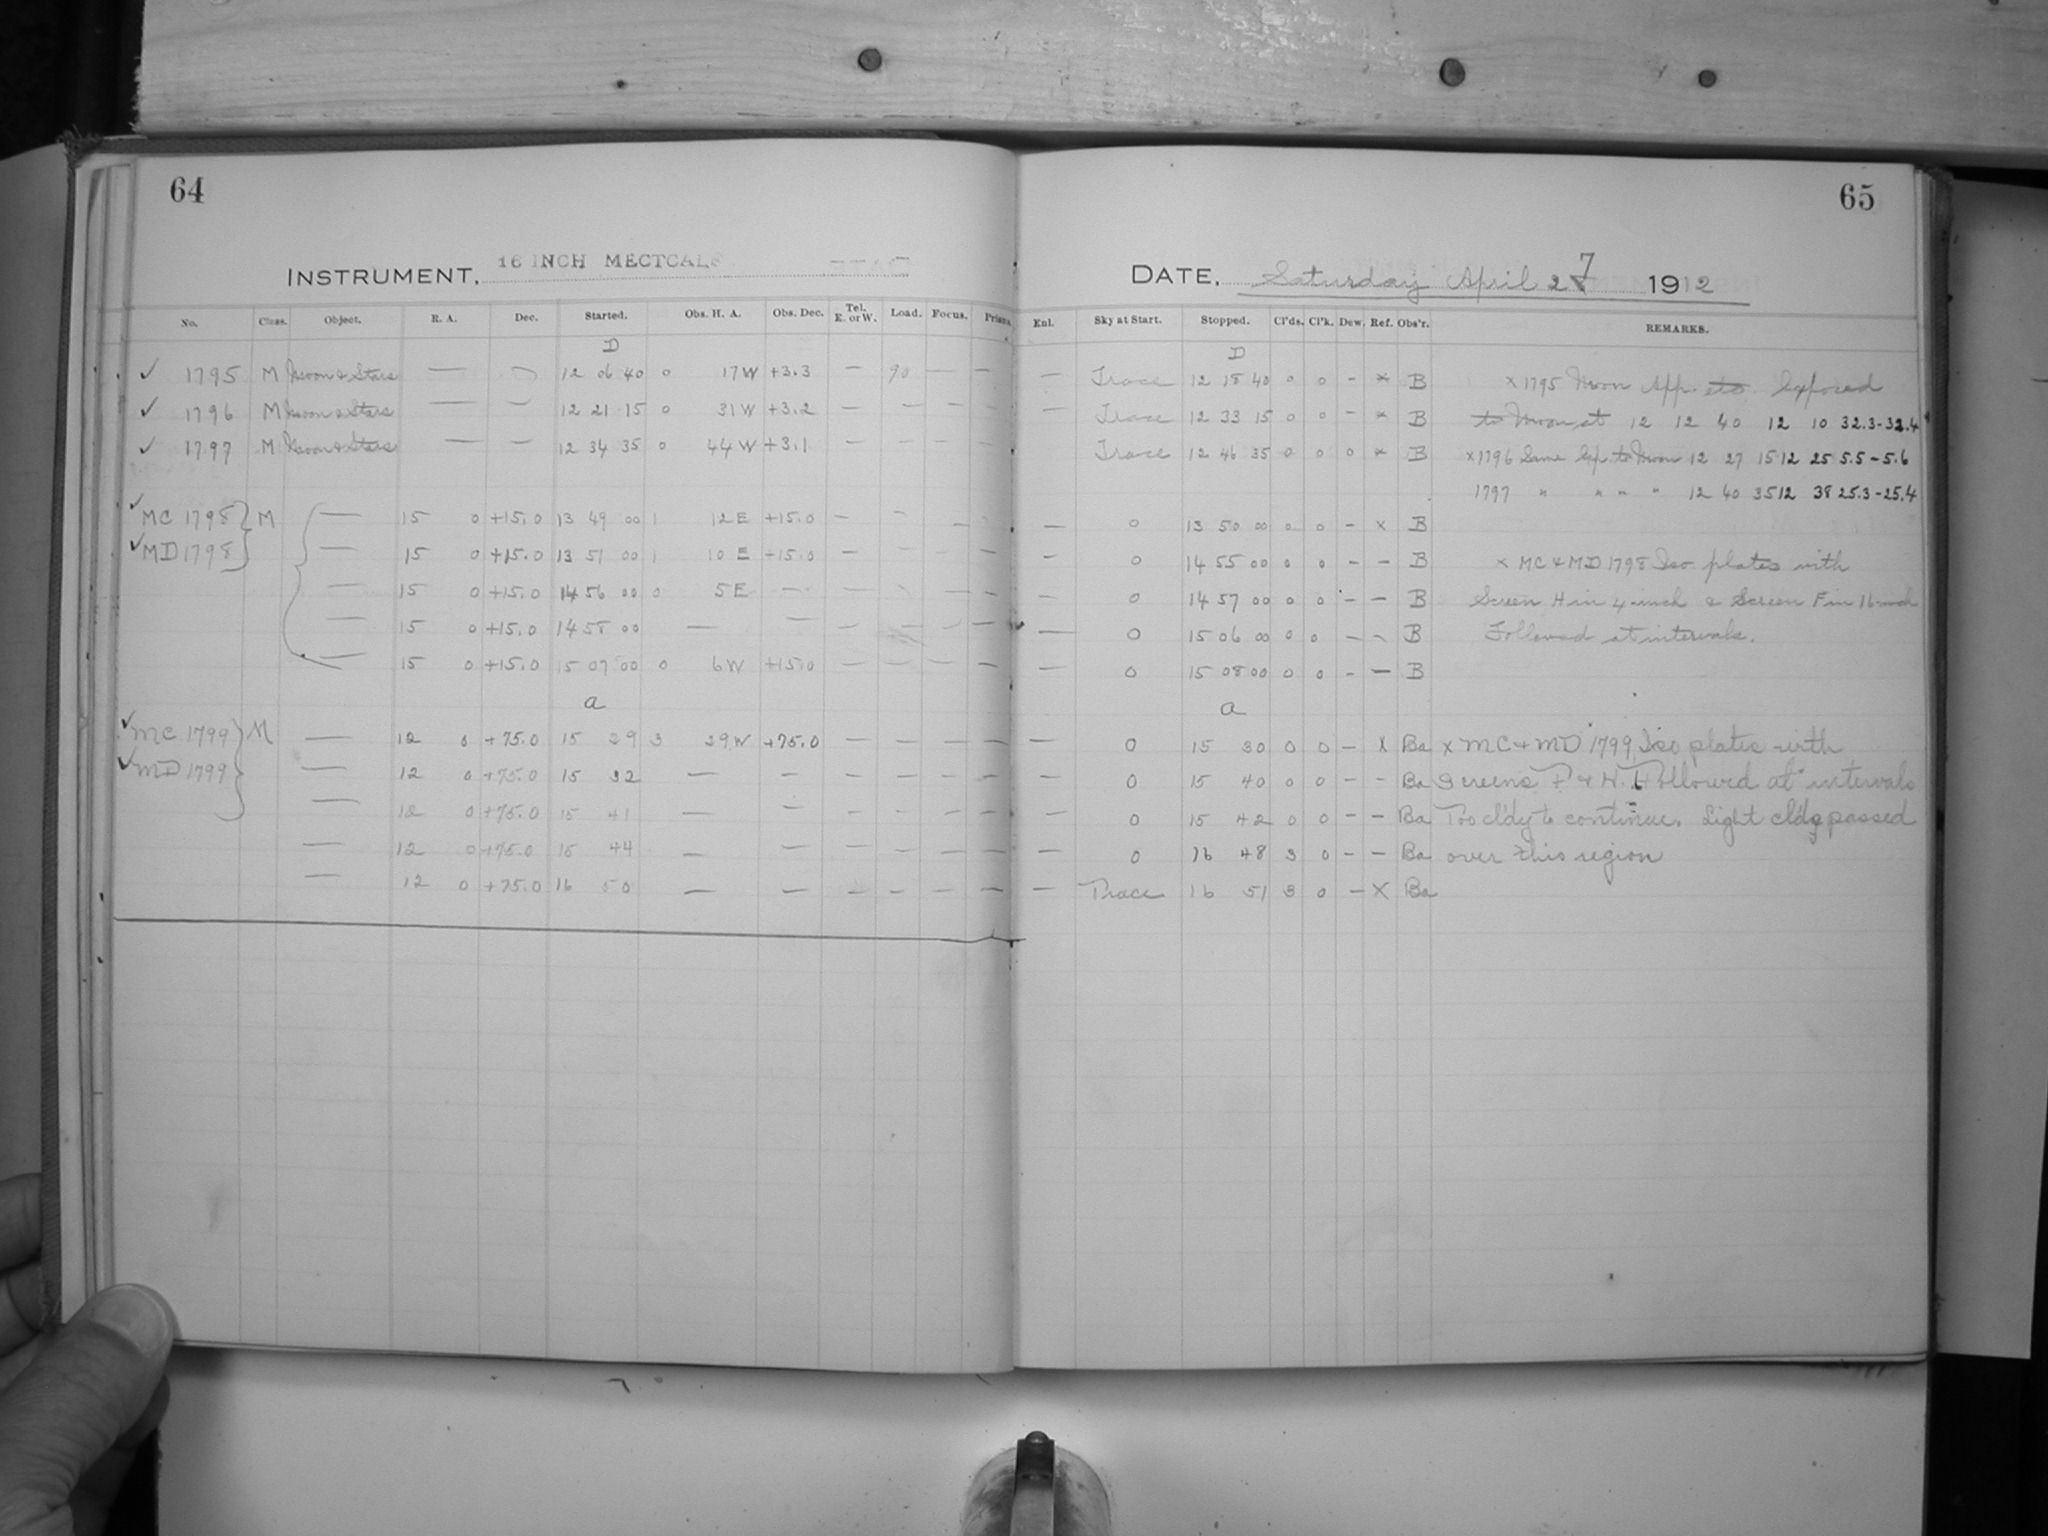 64
INSTRUMENT, 16 INCH METCALF
No. Class. Object. R. A. Dec. Started. Obs. H. A. Obs. Dec. Tel. E. or W. Load. Focus. Prism.
D
✓ 1795 M Moon & Stars — — 12 06 40 0 17 W +3.3 — 90 — —
✓ 1796 M Moon & Stars — — 12 21 15 0 31 W +3.2 — — — —
✓ 1797 M Moon & Stars — — 12 34 35 0 44 W +3.1 — — — —
✓ MC 1798 } M — 15 0 +15.0 13 49 00 1 12 E +15.0 — — — —
✓ MD 1798 } — 15 0 +15.0 13 51 00 1 10 E +15.0 — — — —
— 15 0 +15.0 14 56 00 0 5 E — — — — —
— 15 0 +15.0 14 58 00 — — — — — —
— 15 0 +15.0 15 07 00 0 6 W +15.0 — — — —
a
✓ MC 1799 } M — 12 0 +75.0 15 29 3 29 W +75.0 — — — —
✓ MD 1799 } — 12 0 +75.0 15 32 — — — — — —
— 12 0 +75.0 15 41 — — — — — —
— 12 0 +75.0 15 44 — — — — — —
— 12 0 +75.0 16 50 — — — — — —
65
DATE, Saturday April 27 1912
Enl. Sky at Start. Stopped. Cl'ds. Cl'k. Dew. Ref. Obs'r. REMARKS.
D
— Trace 12 18 40 0 0 – x B x 1795 Moon App. etc. Exposed
— Trace 12 33 15 0 0 – x B to Moon at 12 12 40 12 10 32.3-32.4
Trace 12 46 35 0 0 0 x B x 1796 Same Exp. to Moon 12 27 15 12 25 5.5-5.6
1797 " " " " 12 40 35 12 38 25.3-25.4
— 0 13 50 00 0 0 – x B
— 0 14 55 00 0 0 – – B x MC & MD 1798 Iso plates with
— 0 14 57 00 0 0 – – B Screen H in 4-inch & Screen F in 16-inch
— 0 15 06 00 0 0 – – B Followed at intervals.
— 0 15 08 00 0 0 – – B
a
— 0 15 30 0 0 – x Ba x MC & MD 1799, Iso plates with
0 15 40 0 0 – – Ba Screens F & H. Followed at intervals
— 0 15 42 0 0 – – Ba Too cl'dy to continue. Light cl'ds passed
— 0 16 48 3 0 – – Ba over this region
— Trace 16 51 3 0 – x Ba